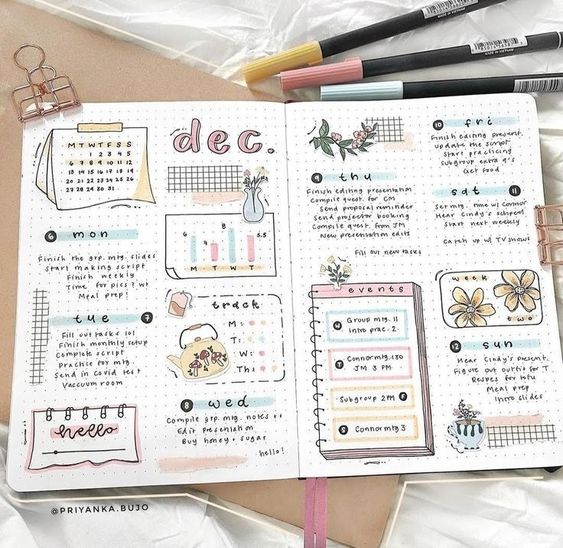 dec.
M T W T F S S
1 2 3 4 5
6 7 8 9 10 11 12
13 14 15 16 17 18 19
20 21 22 23 24 25 26
27 28 29 30 31
6 mon
Finish the grp. mtg. slides
Start making script
Finish weekly
Time for pics? wt
Meal prep!
7 tue
Fill out tasks 101
Finish monthly setup
Complete script
Practice for mtg.
Send in Covid test
Vacuum room
hello
M T W T
track
M:
T:
W:
Th:
8 wed
Compile grp. mtg. notes
Edit Presentation
Buy honey + sugar
hello!
9 thu
Finish editing presentation
Compile quest. for CM
Send proposal reminder
Send projector booking
Compile quest. from JM
New presentation edits
Fill out new tasks
events
W Group mtg. 11
Intro prac. 2
T Connor mtg. 1:30
JM 3 PM
Subgroup 2 PM F
S Connor mtg 3
10 fri
Finish editing present.
Update the script
Start practicing
Subgroup extra q's
Get food
sat 11
Set mtg. time w/ Connor
Hear Cindy's
Start next weekly
Catch up w/ TV shows
week
two
12 sun
Hear Cindy's present.
Figure out outfit for T
Recipes for
Meal prep
Intro slides
@PRIYANKA.BUJO